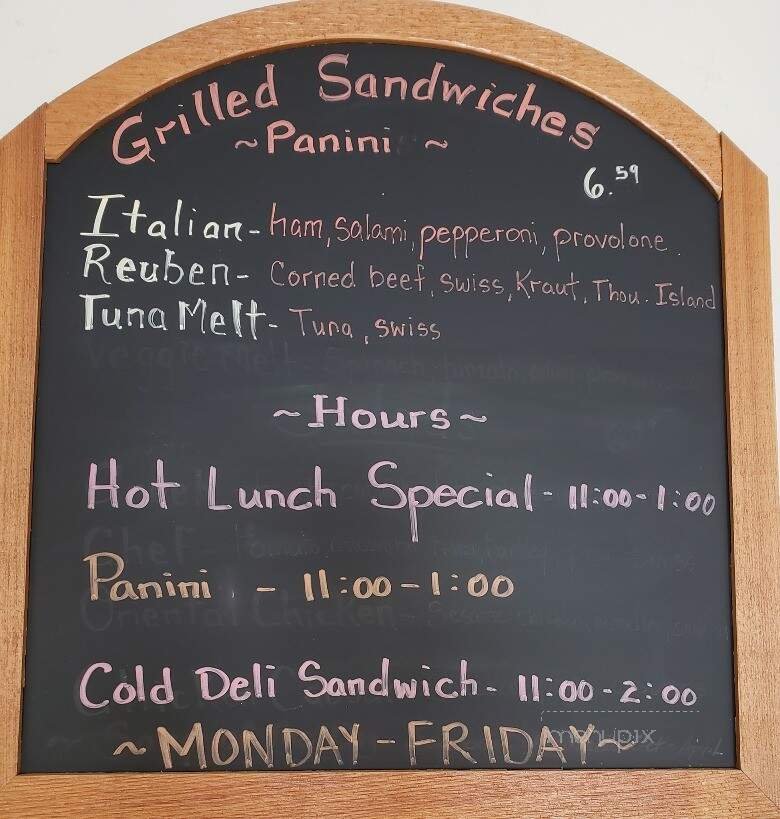 Grilled Sandwiches
~Panini ~
6.59
Italian- ham, salami, pepperoni, provolone.
Reuben- Corned beef, swiss, Kraut, Thou. Island
Tuna Melt- Tuna, swiss
Veggie Melt- Spinach, tomato,
~Hours~
Hot Lunch Special- 11:00-1:00
Chef-
Panini - 11:00-1:00
Oriental Chicken-
Cold Deli Sandwich- 11:00-2:00
~MONDAY-FRIDAY~
menupix